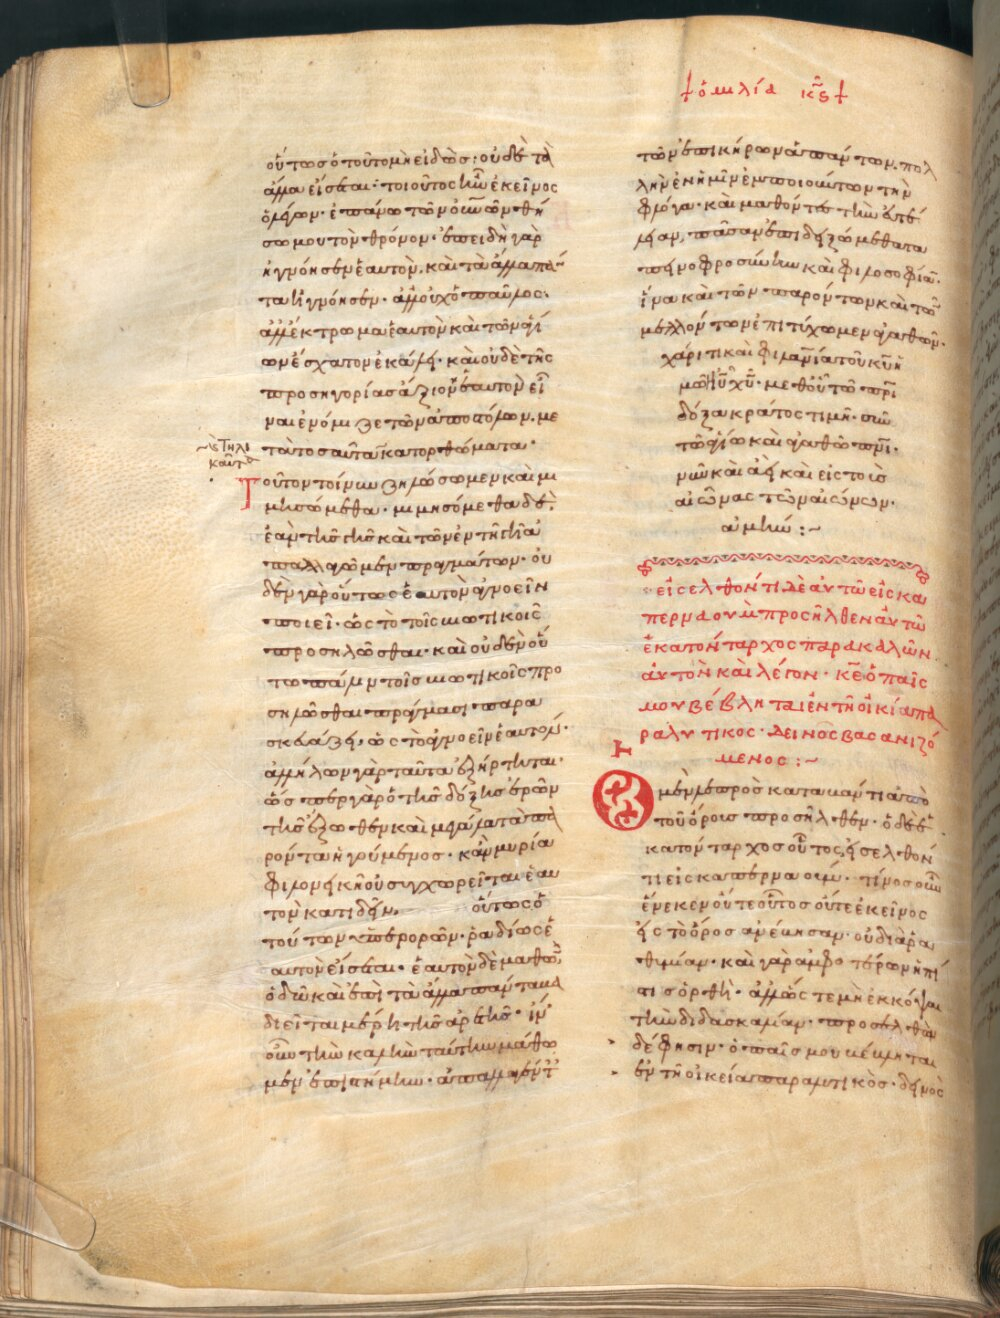 ὁμιλία κϛ
οὕτως ὁ τοῦτο μὴ εἰδὼς· οὐδὲ τὰ
ἄλλα εἴσεται· τοιοῦτος ἦν ἐκεῖνος
ὁ λέγων· ἐπάνω τῶν οὐνῶν θή
σω μου τὸν θρόνον· ἐπειδὴ γὰρ
ἠγνόησεν ἑαυτὸν, καὶ τὰ ἄλλα πάν
τα ἠγνόησεν· ἀλλ' οὐχ ὁ παῦλος·
ἀλλ' ἔκτρωμα ἑαυτὸν καὶ τῶν ἁγί
ων ἔσχατον ἐκάλει· καὶ οὐδὲ τῆς
προσηγορίας ἄξιον ἑαυτὸν εἶ
ναι ἐνόμιζε τῶν ἀποστόλων· με
τὰ τοσαῦτα κατορθώματα·
ἢ τηλι
καῦτα
Τοῦτον τοίνυν ζηλώσωμεν καὶ μι
μησώμεθα· μιμησόμεθα δὲ,
ἐὰν τῆς γῆς καὶ τῶν ἐν τῇ γῇ ἀ
παλλαγῶμεν πραγμάτων· οὐ
δὲν γὰρ οὕτως ἑαυτὸν ἀγνοεῖν
ποιεῖ· ὡς τὸ τοῖς βιωτικοῖς
προσηλῶσθαι· καὶ οὐδὲν οὕ
τω πάλιν τοῖς βιωτικοῖς προ
σηλῶσθαι πράγμασι παρα
σκευάζει, ὡς τὸ ἀγνοεῖν ἑαυτόν·
ἀλλήλων γὰρ ταῦτα ἐξήρτηται·
ὥσπερ γὰρ ὁ τῆς δόξης ἐρῶν
τῆς ἔξωθεν καὶ μεγάλα τὰ πα
ρόντα ἡγούμενος· κἂν μυρία
φιλονεικῇ οὐ συγχωρεῖται ἑαυ
τὸν κατιδεῖν, οὕτως ὁ
τούτων ὑπερορῶν· ῥαδίως ἑ
αυτὸν εἴσεται· ἑαυτὸν δὲ μαθὼν
ὁδῷ καὶ ἐπὶ τὰ ἄλλα πάντα
διεῖται μέρη τῆς ἀρετῆς· ἵν'
οὖν τὴν καλὴν ταύτην μάθω
μεν ἐπιστήμην· ἀπαλλαγέντ
τῶν ἐπικήρων ἁπάντων· πολ
λὴν ἐν ἡμῖν ἐμποιούντων τὴν
φλόγα· καὶ μαθόντες τὴν εὐτέ
λειαν, πᾶσαν ἐπιδειξώμεθα τα
πεινοφροσύνην καὶ φιλοσοφίαν·
ἵνα καὶ τῶν παρόντων καὶ τῶν
μελλόντων ἐπιτύχωμεν ἀγαθῶν·
χάριτι καὶ φιλανίᾳ τοῦ κυ ἡ
μῶν ιυ χυ· μεθ' οὗ τῷ πρι
δόξα κράτος τιμὴ· σὺν
τῷ ἁγίῳ καὶ ἀγαθῷ πνι·
νῦν καὶ ἀεὶ καὶ εἰς τοὺς
αἰῶνας τῶν αἰώνων·
ἀμήν :~
εἰσελθόντι δὲ αὐτῷ εἰς κα
περναοὺμ προσῆλθεν αὐτῷ
ἑκατόνταρχος παρακαλῶν
αὐτὸν καὶ λέγων· κε ὁ παῖς
μου βέβληται ἐν τῇ οἰκίᾳ πα
ραλυτικος· δεινῶς βασανιζό
μενος :~
Ὁ μὲν λεπρὸς καταβάντι ἀπὸ
τοῦ ὄρους προσῆλθεν· ὁ δὲ ἑ
κατόνταρχος οὗτος, εἰσελθόν
τι εἰς καπερναούμ· τίνος οὖν
ἕνεκεν οὔτε οὗτος οὔτε ἐκεῖνος
εἰς τὸ ὄρος ἀνέβησαν· οὐ διὰ ῥα
θυμίαν· καὶ γὰρ ἀμφοτέρων ἡ πί
στις θερμή· ἀλλ' ὥστε μὴ ἐκκόψαι
τὴν διδασκαλίαν· προσελθὼν
δέ φησιν· ὁ παῖς μου βέβληται
ἐν τῇ οἰκείᾳ παραλυτικὸς· δεινῶς